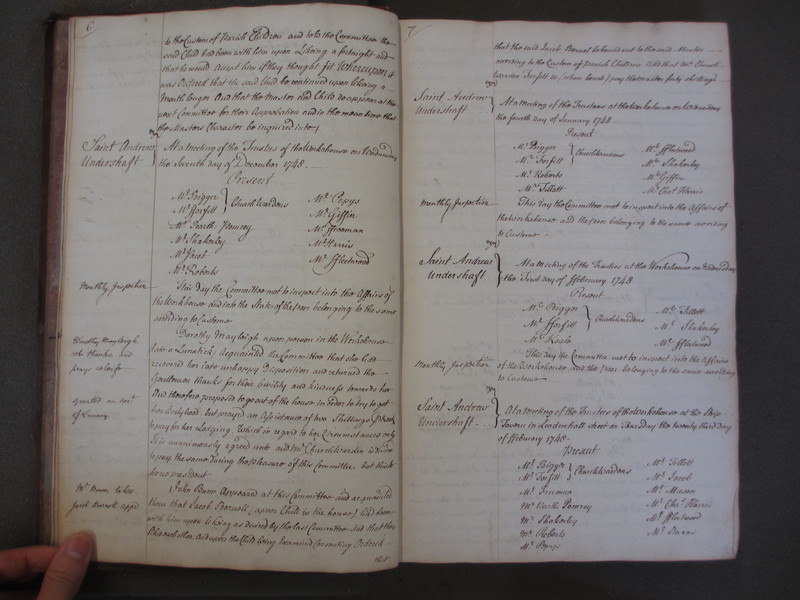 6
to the Custom of Parish Children and told the Committee the
said Child had been with him upon Likeing a fortnight and
that he would accept him if they thought fit Whereupon it
was Ordered that the said Child be continued upon likeing a
Month longer And that the Master and Child do appear at the
next Committee for their Approbation and in the mean time that
the Masters Character be inquired into
Saint Andrew
Undershaft
At a meeting of the Trustees of the Workhouse on Wednesday
the Seventh day of December 1748
Present
Mr. Brigge
Mr. fforfitt
Churchwardens
Mr. Pomroy
Mr. Shakerley
Mr. Jacob
Mr. Roberts
Mr. Pepys
Mr. Giffin
Mr. ffreeman
Mr. Harris
Mr. ffleetwood
Monthly Inspection
This day the Committee met to inspect into the Affairs of
the Workhouse and into the State of the Poor belonging to the same
according to Custome
Dorothy Mayleigh
rets thanks and
prays relief
Dorothy Mayleigh a poor person in the Workhouse
late a Lunatick Acquainted the Committee that she had
recovered her late unhappy Disposition and returned the
Gentlemen thanks for their Civility and kindness towards her
And therefore proposed to go out of the house in order to try to get
her lively hood but prayed an Assistance of two Shillings
to pay for her Lodging Which in regard to her Circumstances only
It is unanimously agreed unto and Mr. Churchwarden is desired
to pay the same during the Pleasure of this Committee but this to
be no president
John Bunn Appeared at this Committee and acquainted
them that Jacob a poor Child in the house had been
with him upon likeing as desired by the last Committee And that he
and upon the Child being Examined Consenting Ordered
that
7
that the said Jacob be bound out to the said Master
according to the Custom of Parish Children And that Mr. Church
Warden Forfitt do (when bound) pay the Master forty shillings
Saint Andrew
Undershaft
At a Meeting of the Trustees at the Workhouse on Wednesday
the fourth day of January 1748
Present
Mr. Brigge
Mr. Forfitt
Churchwardens
Mr. Roberts
Mr. Tillott
Mr. ffleetwood
Mr. Shakerley
Mr. Giffin
Mr. Chas. Harris
Monthly Inspection
This day the Committee met to inspect into the Affairs of
the Workhouse and the Poor belonging to the same according
to Custome
Saint Andrew
Undershaft
At a Meeting of the Trustees at the Workhouse on Wednesday
the First day of ffebruary 1748
Present
Mr. Brigge
Mr. fforfitt
Churchwardens
Mr. Tillott
Mr. Shakerley
Mr. ffleetwood
Monthly Inspection
This day the Committee met to inspect into the Affairs
of the Workhouse and the Poor belonging to the same according
to Custome
Saint Andrew
Undershaft
At a Meeting of the Trustees of the Workhouse at the Ship
Tavern in Leadenhall street on Thursday the twenty third day
of ffebruary 1748
Present
Mr. Brigge
Mr. Forfitt
Churchwardens
Mr. Freeman
Mr. Pomroy
Mr. Shakerley
Mr. Roberts
Mr. Pepys
Mr. Tillott
Mr. Jacob
Mr. Mason
Mr. Chas. Harris
Mr. ffleetwood